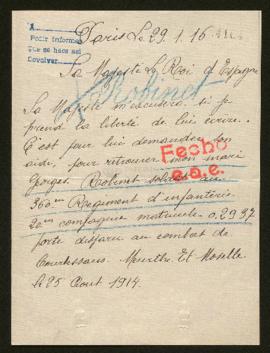 A
Pedir informes
que se hace así
Devolver
Paris Le 29.1.16
Sa Majesté Le Roi d'Espagne
Robinet
Sa Majesté m'excusera si je
prend la liberté de lui écrire.
C'est pour lui demander son
aide, pour retrouver mon mari
Fecho
Georges. Robinet soldat au
s.a.c.
360em Régiment d'infanterie
20em compagnie matricule 0.2937
porté disparu au combat de
Meurthe Et Moselle
Le 25 Aout 1914.